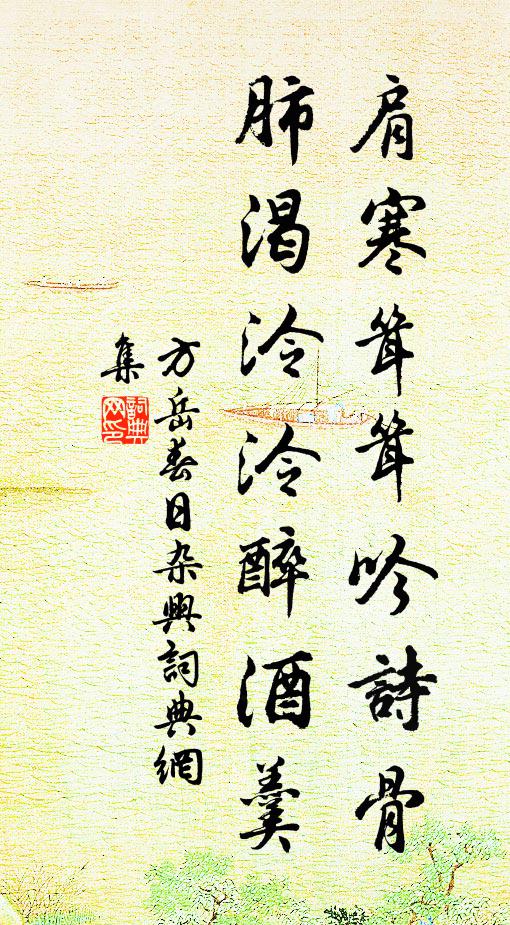 肩寒耸耸吟詩骨
肺渴泠泠醉酒羹
方岳春日杂興詞典網
集
詞典
网印